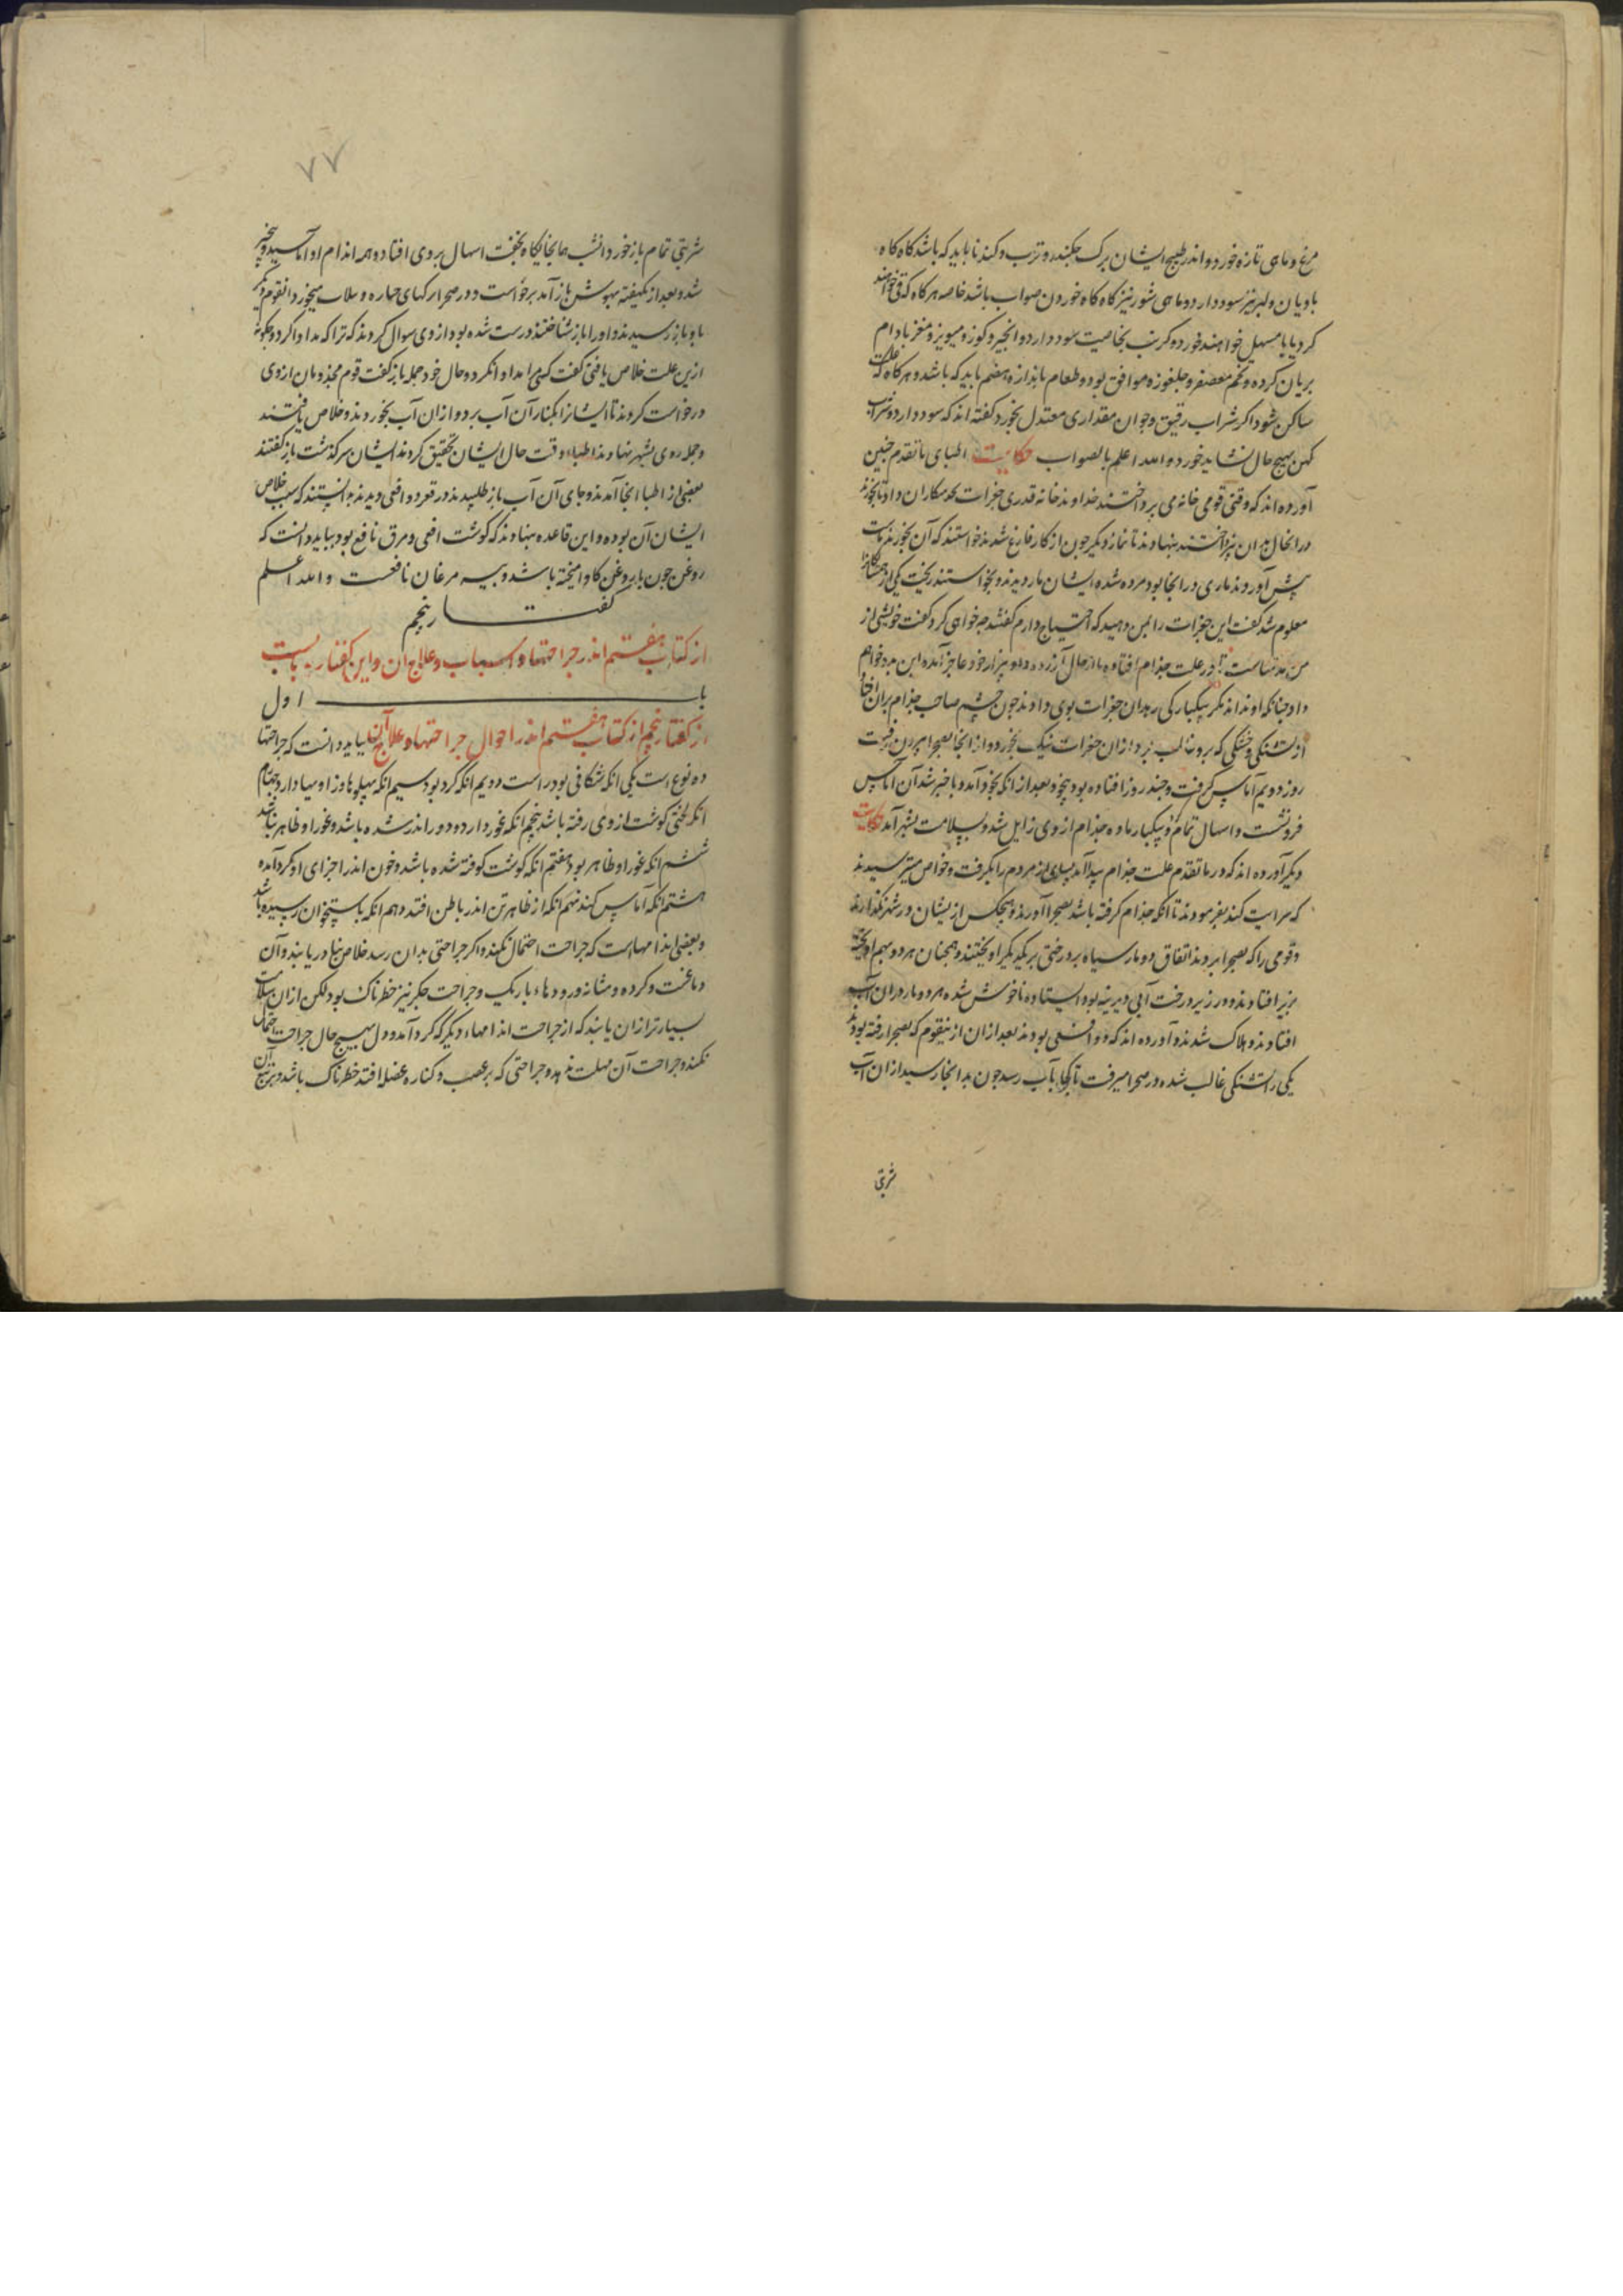 مرغ و ماهی تازه خورد و اندر طبیخ ایشان برک جکندر و ترب و کندنا باید که باشد کاه کاه
بادیان و کبر نیز سود دارد و ماهی شور نیز کاه کاه خوردن صواب باشد خاصه هر کاه که قی خواهند
کرد یا با مسهل خواهند خورد و کرنب بخاصیت سود دارد و انجیر و کوز و میویز و مغز بادام
بریان کرده و تخم معصفر و جلغوزه موافق بود و طعام باندازه هضم باید که باشد و هر کاه که علت
ساکن شود اکر شراب رقیق و جوان مقداری معتدل بخورد کفته اند که سود دارد و شراب
کهن بهیج حال نشاید خورد والله اعلم بالصواب حکایت اطبای ما تقدم جنین
آورده اند که وقتی قومی خانه می برداختند خداوند خانه قدری جغرات داد تا بخورند
در انحال بدان نپرداختند بنهادند تا نماز دیکر جون از کار فارغ شدند خواستند که آن بخورند
پیش آوردند ماری در انجا بود مرده شده ایشان مار دیدند و بخواستند ریخت یکی از
معلوم شد کفت این جغرات را بمن دهید که احتیاج دارم کفتند جه خواهی کرد کفت خویشی از
من در علت جذام افتاده و از خود عاجز آمده این بدو خواهم
داد جنانکه او نداند مکر پیکبارکی رهد ان جغرات بوی دادند جون جشم صاحب جذام بران افتاد
از تشنکی و خشکی که برو غالب بود ازان جغرات نیک بخورد و از انجا بصحرا بیرون رفت
روز دویم آماس کرفت و جند روز افتاده بود بیخود بعد از انکه بخود آمد و باخبر شد آن آماس
فرو نشست و اسهال تمام و پیکبار ماده جذام از وی زایل شد و بسلامت بشهر آمد حکایت
دیکر آورده اند که در ما تقدم علت جذام پیدا آمد بسیاری از مردم را بکرفت و خواص میترسیدند
که سرایت کند بفرمودند تا آنکه جذام کرفته باشد بصحرا آورند و هیجکس از یشان در شهر نکذارند
و قومی را که بصحرا بردند اتفاق دو مار سیاه بر درختی بر یکدیکر اویختند و همجنان هر دو بهم اویخته
بزیر افتادند و در زیر درخت آبی دیرینه بود ایستاده ناخوش شده هر دو مار در ان آب
افتادند و هلاک شدند و آورده اند که دو افعی بودند بعد ازان از ینقوم که بصحرا رفته بودند
یکی را تشنکی غالب شده در صحرا میرفت تا کجا بآب رسد جون بدانجا رسید از ان آب
شربتی
۷۷
شربتی تمام باز خورد انشب همانجایکاه بخفت اسهال بر وی افتاد و همه اندام او آماسید و بیخبر
شد و بعد از یکهفته بهوش باز آمد برخاست و در صحرا رکهای میخورد انقوم دیکر
باو باز رسیدند و او را باز شناختند درست شده بود از وی سوال کردند که ترا که مداوا کرد و جکونه
ازین علت خلاص یافتی کفت کسی مرا مداوا نکرد و حال خود جمله باز کفت قوم مجذومان از وی
درخواست کردند تا ایشانرا بکنار آن آب برد و ازان آب بخوردند و خلاص یافتند
و جمله روی بشهر نهادند اطباء وقت حال ایشان تحقیق کردند ایشان سرکذشت باز کفتند
بعضی از اطبا انجا آمدند و جای آن آب باز طلبیدند در قعر دو افعی دیدند بدانستند که سبب خلاص
ایشان آن بوده و این قاعده بنهادند که کوشت افعی و مرق نافع بود و بباید دانست که
روغن جون با روغن کاو امیخته باشد و پیه مرغان نافعست والله اعلم
کفتار پنجم
از کتاب هفتم اندر جراحتها و اسباب و علاج ان و این کفتار بابست
باب اول
از کفتار پنجم از کتاب هفتم اندر احوال جراحتها و علاج آن بباید دانست که جراحتها
ده نوع است یکی انکه شکافی بود راست دویم انکه کرد بود سیم انکه پهلوها و زاویها دارد جهارم
انکه لختی کوشت از وی رفته باشد پنجم انکه غور دارد و دور اندر شده باشد و غور او ظاهر نباشد
ششم انکه غور او ظاهر بود هفتم انکه کوشت کوفته شده باشد و خون اندر اجزای او کرد آمده
هشتم انکه آماس کند نهم انکه از ظاهر تن اندر باطن افتد دهم انکه باستخوان رسیده باشد
و بعضی اندامهاست که جراحت احتمال نکند و اکر جراحتی بدان رسد خلاص نیابد و آن
دماغست و کرده و مثانه و رودهاء باریک و جراحت جکر نیز خطرناک بود لکن ازان سلامت
بسیارتر ازان یابند که از جراحت اندامهاء دیکر که کرد آمد و دل بهیج حال جراحت احتمال
نکند و جراحت آن مهلت ندهد و جراحتی که بر عصب و کناره عضله افتد خطرناک باشد و تشنج آن